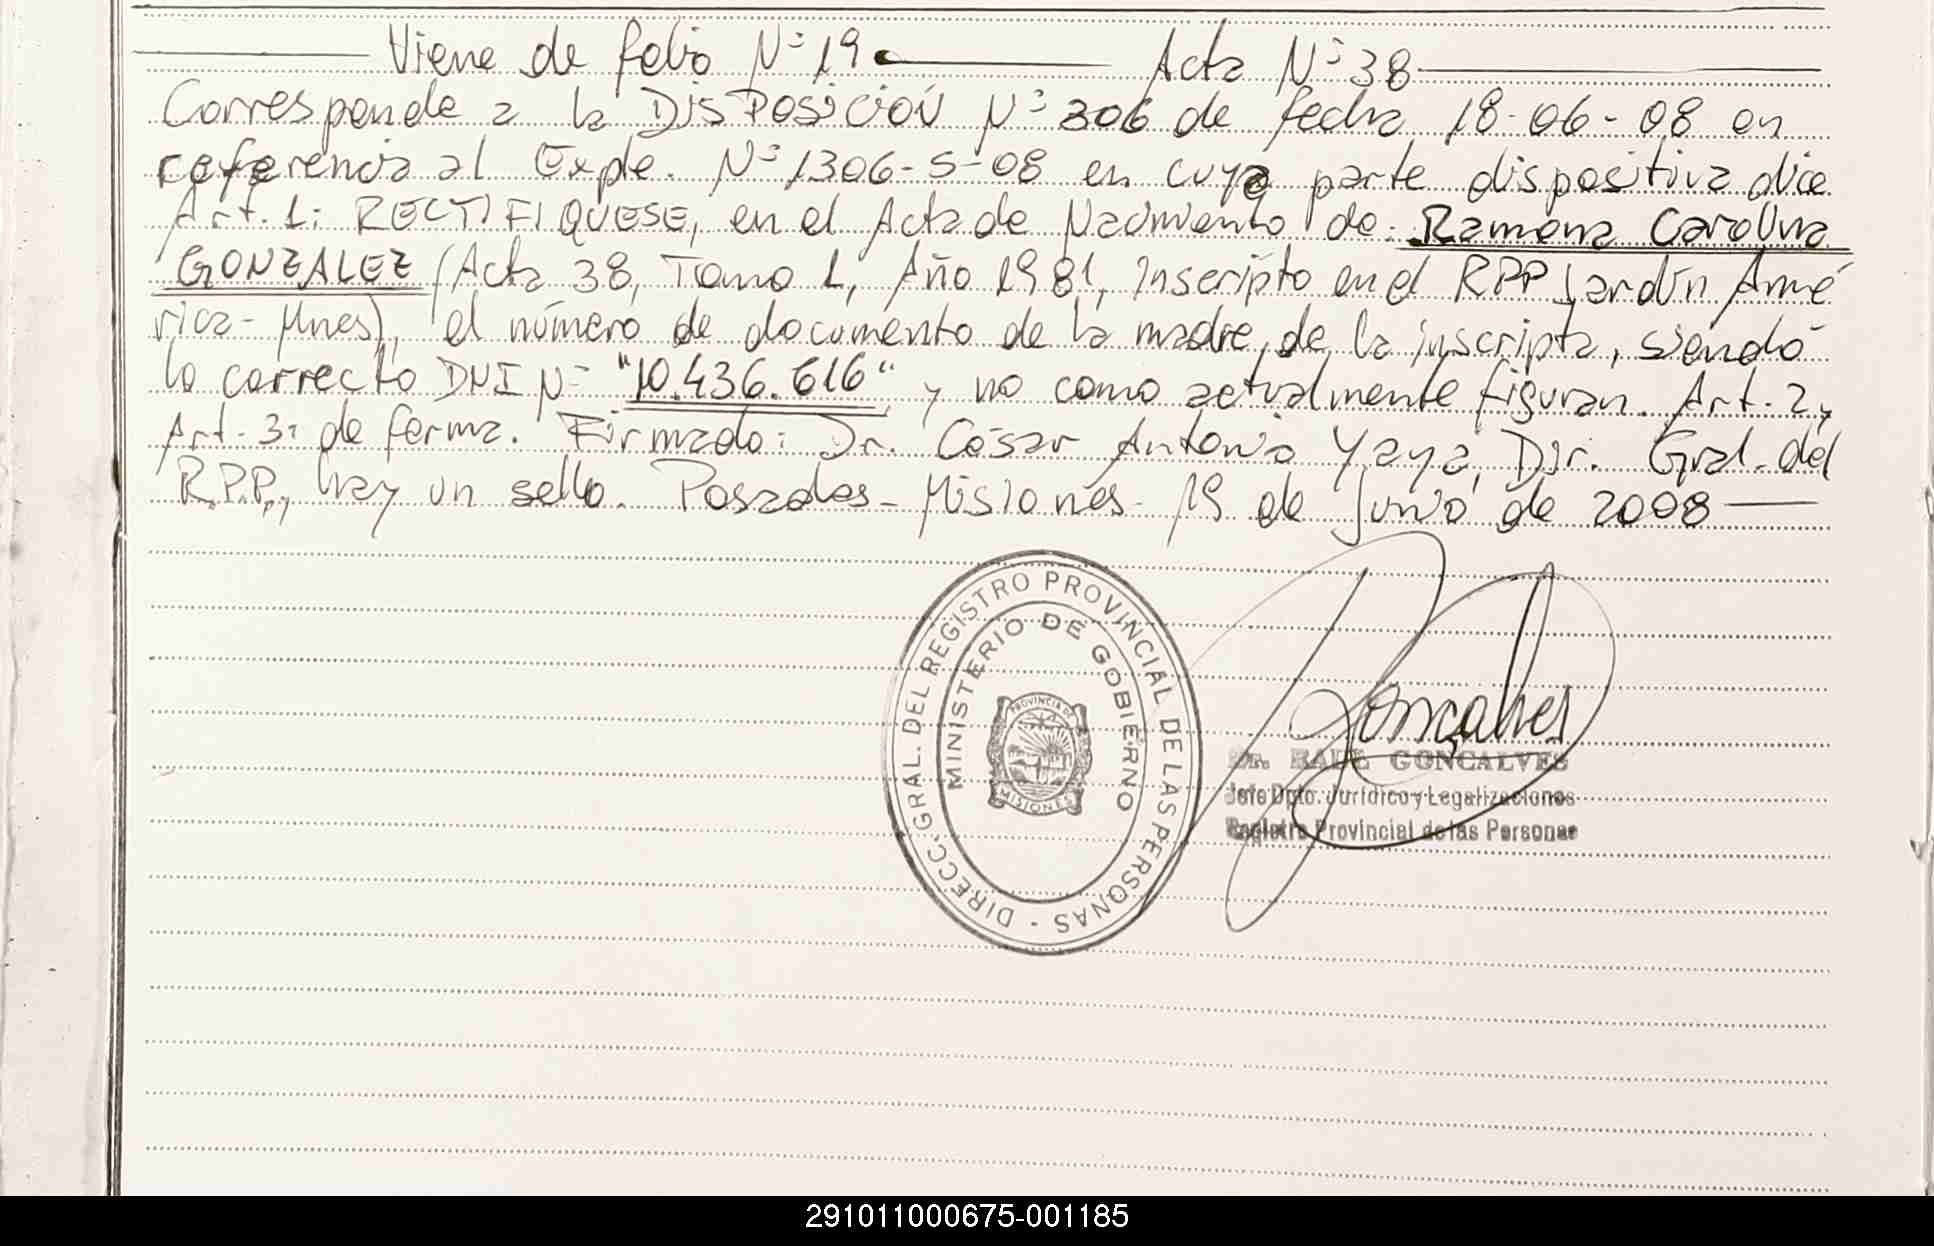 Viene de folio Nº 19 Acta Nº 38
Corresponde a la DISPOSICIÓN Nº 306 de fecha 18-06-08 en
referencia al Expte. Nº 1306-S-08 en cuya parte dispositiva dice
Art. 1: RECTIFIQUESE, en el Acta de Nacimiento de: Ramona Carolina
GONZALEZ (Acta 38, Tomo 1, Año 1981, Inscripto en el RPP Jardín Amé
rica-Mnes), el número de documento de la madre de la inscripta, siendo
lo correcto DNI Nº "10.436.616" y no como actualmente figuran. Art. 2 y
Art. 3: de forma. Firmado: Dr. César Antonio Yaya, Dir. Gral. del
R.P.P., hay un sello. Posadas-Misiones 19 de Junio de 2008
DIRECC. GRAL. DEL REGISTRO PROVINCIAL DE LAS PERSONAS -
MINISTERIO DE GOBIERNO
PROVINCIA DE
MISIONES
Goncalves
Dr. RAUL GONCALVES
Jefe Dpto. Jurídico y Legalizaciones
Registro Provincial de las Personas
291011000675-001185